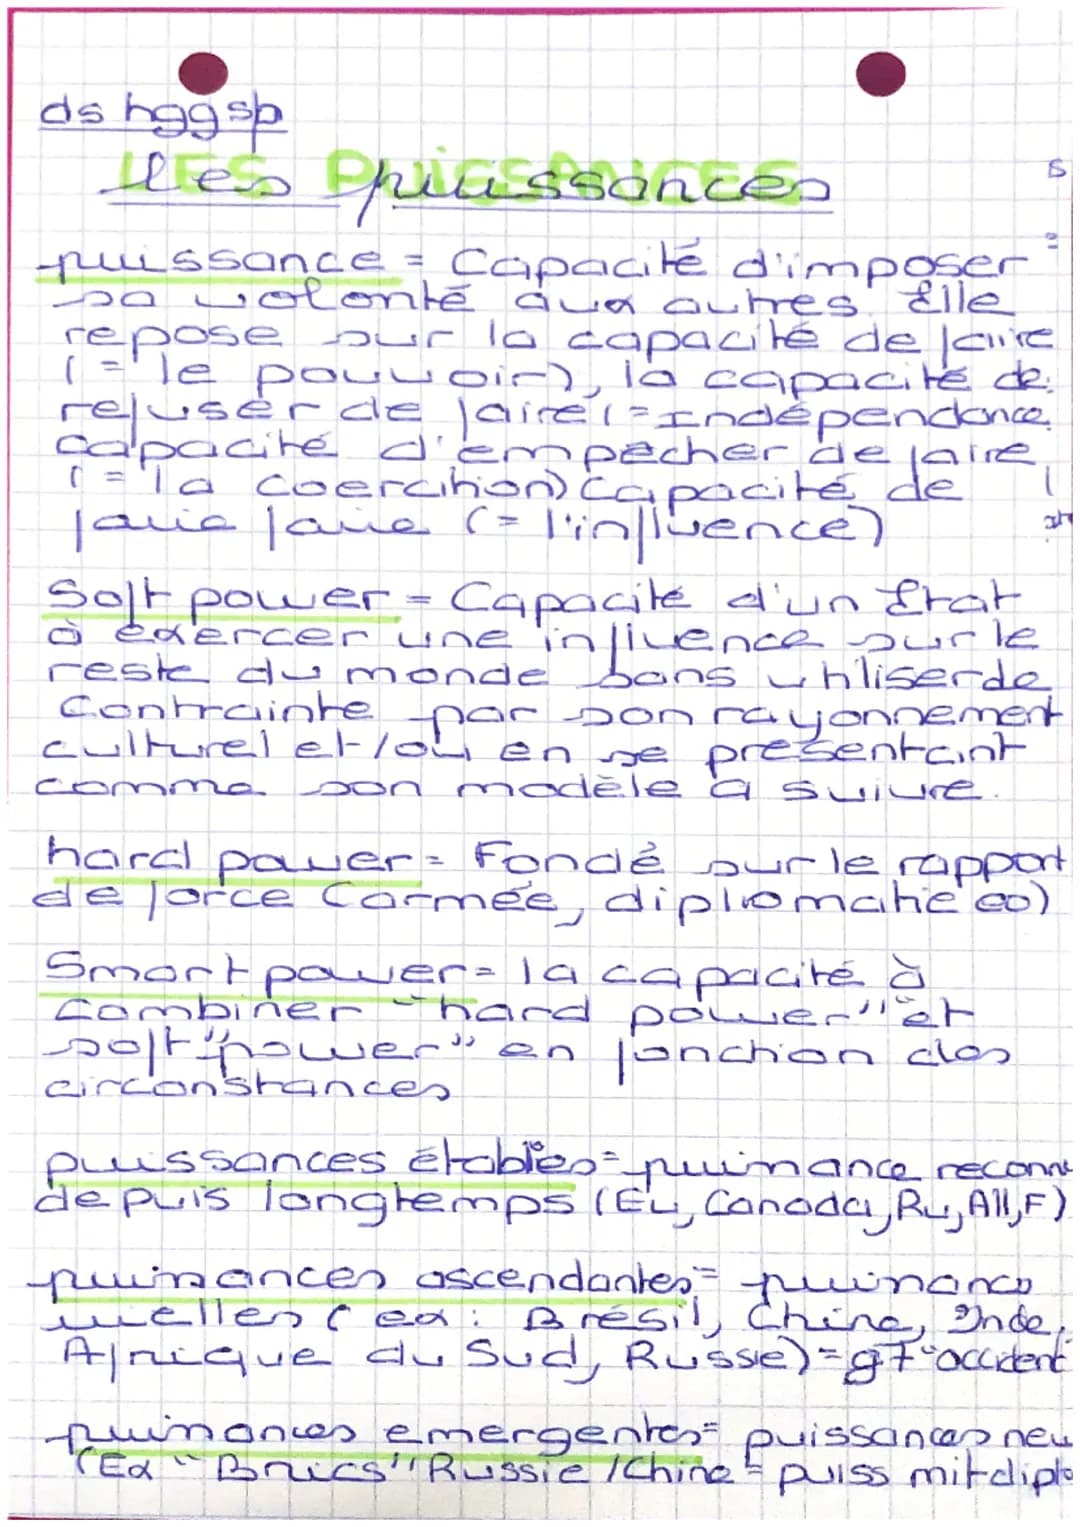 ds hggsp
Les puissances
puissance = Capacité d'imposer
sa volonté aux autres. Elle
repose sur la capacité de faire
(= le pouvoir), la capacité de
refuser de faire (= Indépendance
capacité d'empêcher de faire
(= la coercition) Capacité de
faire faire (= l'influence)
Soft power = Capacité d'un État
à exercer une influence sur le
reste du monde sans utiliser de
Contrainte par son rayonnement
culturel et/ou en se présentant
comme son modèle à suivre.
hard power = Fondé sur le rapport
de force (armée, diplomatie eo)
Smart power = la capacité à
Combiner "hard power" et
soft "power" en fonction des
circonstances
puissances établies = puissance reconnu
depuis longtemps (EU, Canada, Ru, All, F)
puissances ascendantes = puissance
(ex : Brésil, Chine, Inde,
Afrique du Sud, Russie) = g7 occident
puissances emergentes = puissances neu
(Ex "Brics" Russie / Chine = puiss mil diplo